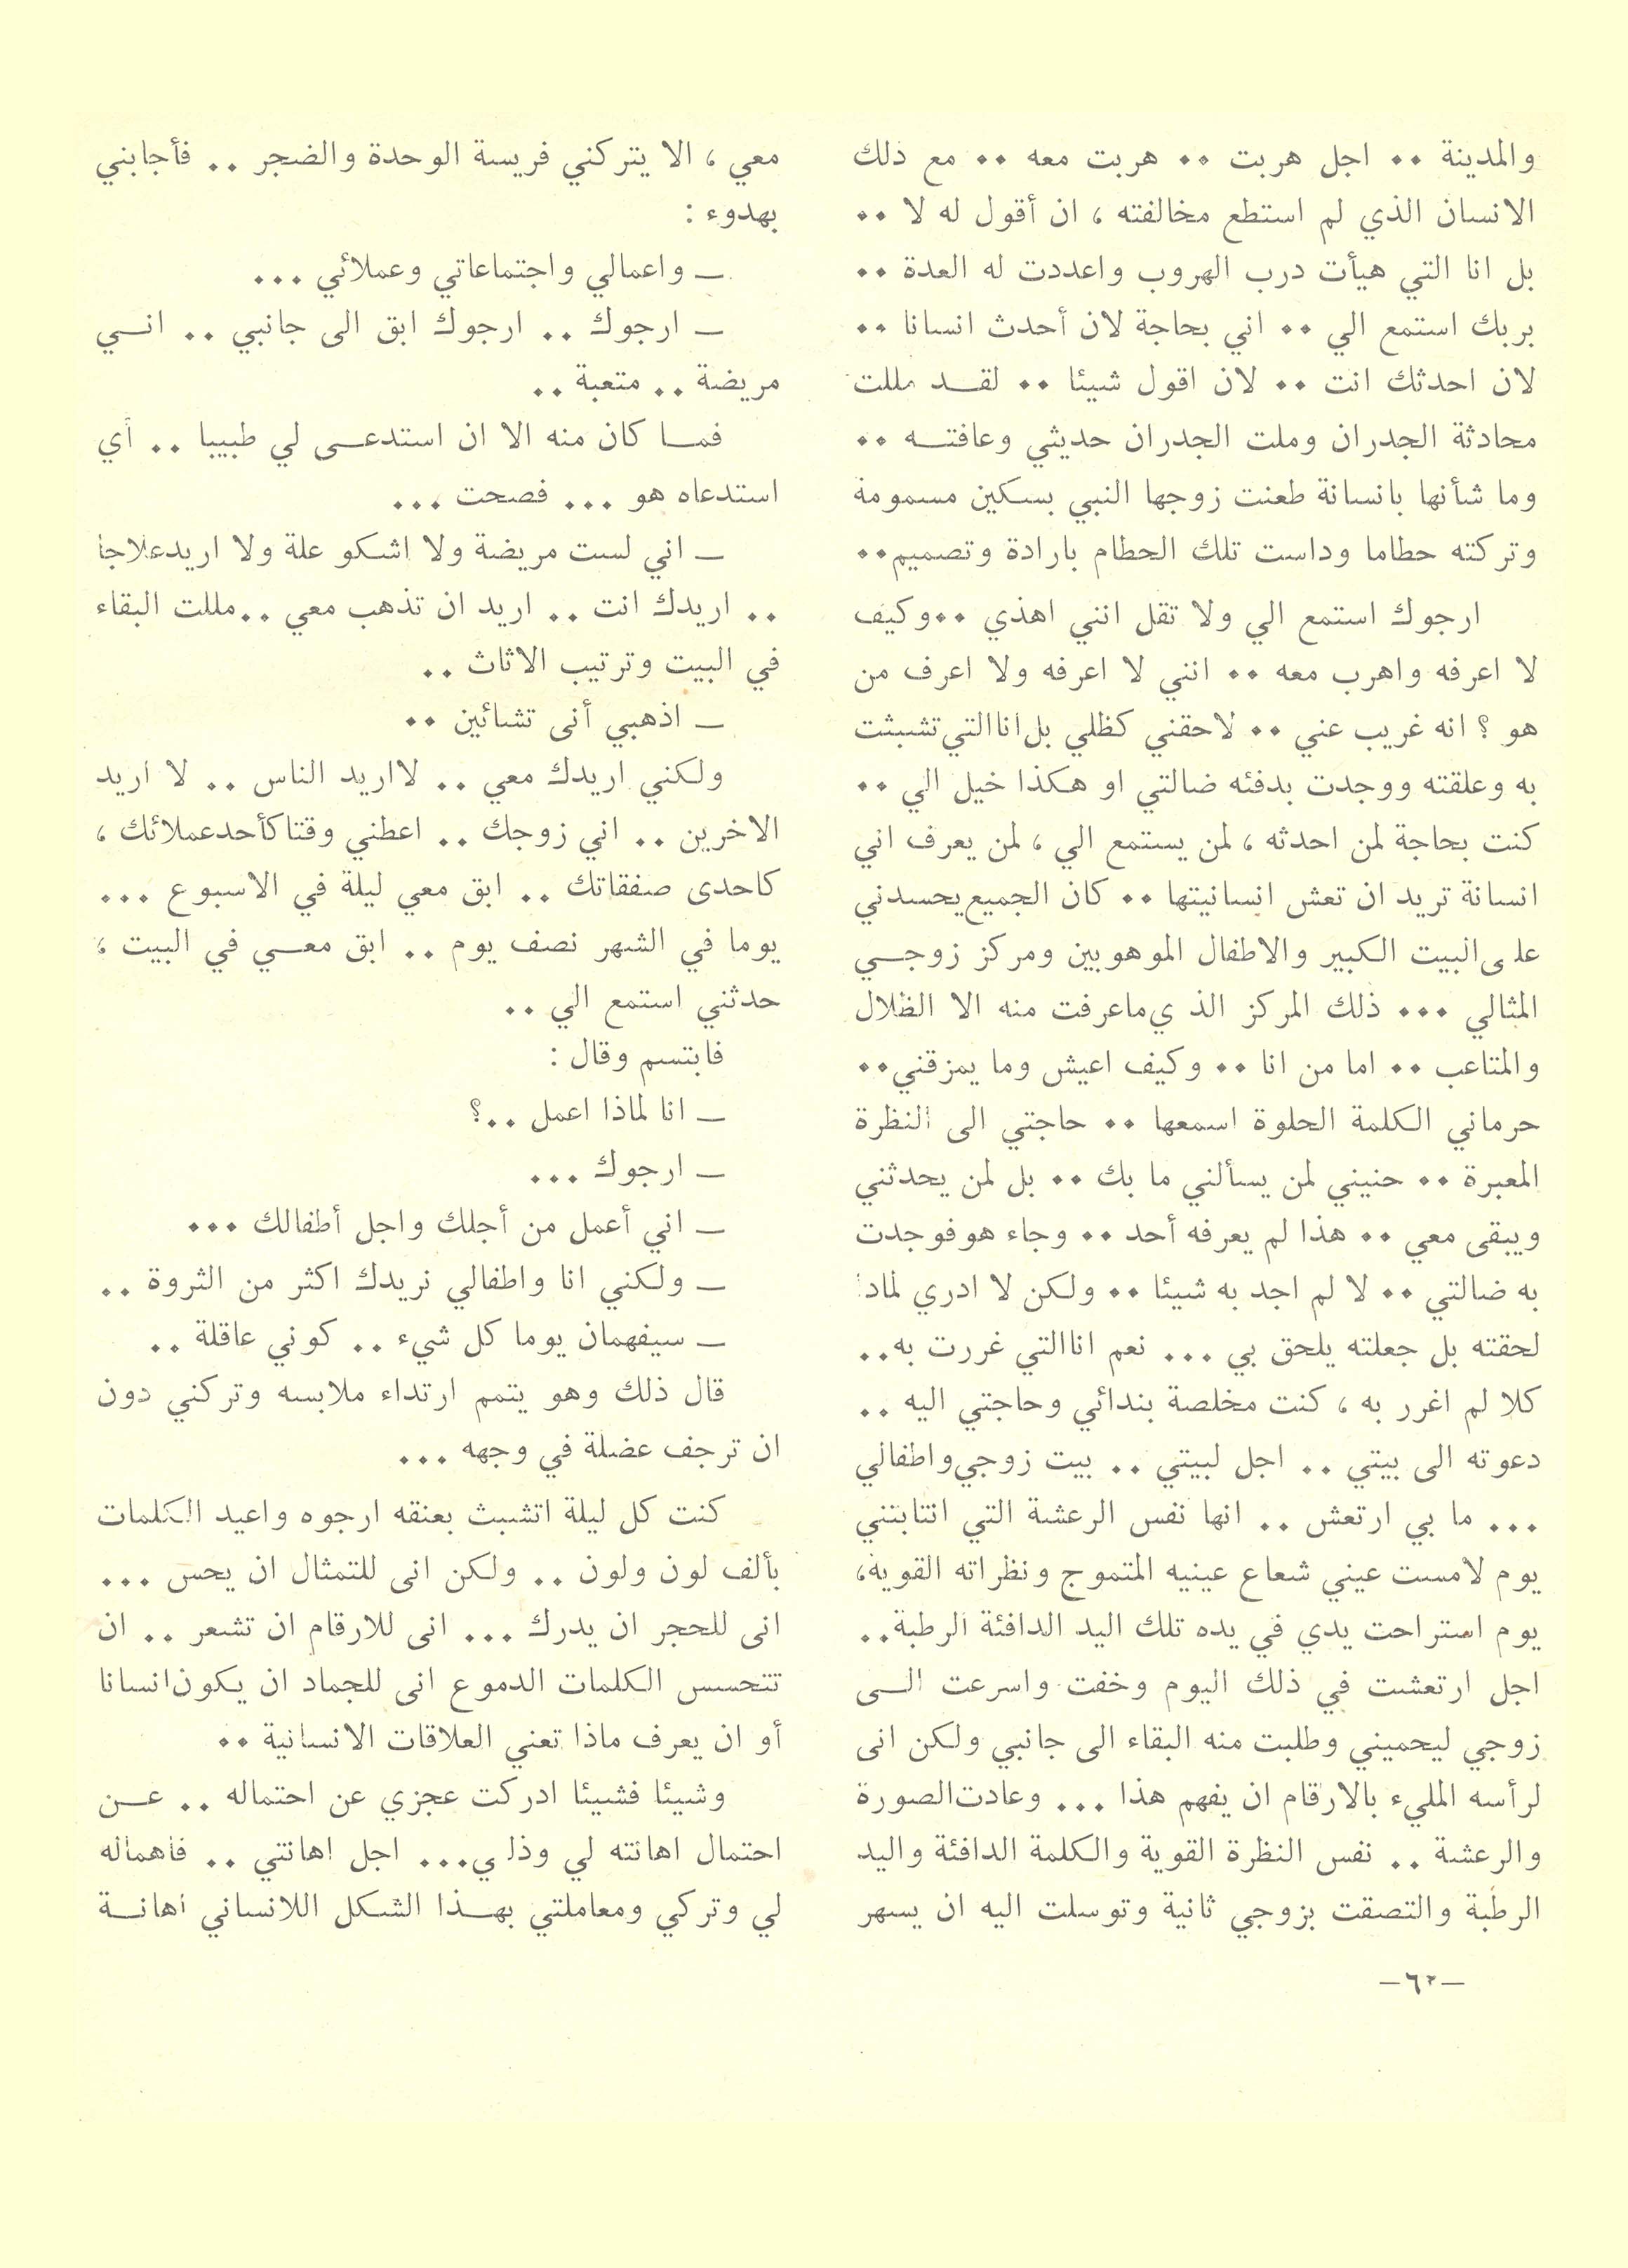 والمدينة ٠٠ اجل هربت ٠٠ هربت معه ٠٠ مع ذلك
الانسان الذي لم استطع مخالفته ، ان أقول له لا ٠٠
بل انا التي هيأت درب الهروب واعددت له العدة ٠٠
بربك استمع الي ٠٠ اني بحاجة لان أحدث انسانا ٠٠
لان احدثك انت ٠٠ لان اقول شيئا ٠٠ لقـد مللت
محادثة الجدران وملت الجدران حديثي وعافتـه ٠٠
وما شأنها بانسانة طعنت زوجها النبي بسكين مسمومة
وتركته حطاما وداست تلك الحطام بارادة وتصميم٠٠
ارجوك استمع الي ولا تقل انني اهذي ٠٠وكيف
لا اعرفه واهرب معه ٠٠ انني لا اعرفه ولا اعرف من
هو ؟ انه غريب عني ٠٠ لاحقني كظلي بل انا التي تشبثت
به وعلقته ووجدت بدفئه ضالتي او هكذا خيل الي ٠٠
كنت بحاجة لمن احدثه ، لمن يستمع الي ، لمن يعرف اني
انسانة تريد ان تعش انسانيتها ٠٠ كان الجميع يحسدني
على البيت الكبير والاطفال الموهوبين ومركز زوجـي
المثالي ٠٠٠ ذلك المركز الذ ي ماعرفت منه الا الظلال
والمتاعب ٠٠ اما من انا ٠٠ وكيف اعيش وما يمزقني٠٠
حرماني الكلمة الحلوة اسمعها ٠٠ حاجتي الى النظرة
المعبرة ٠٠ حنيني لمن يسألني ما بك ٠٠ بل لمن يحدثني
ويبقى معي ٠٠ هذا لم يعرفه أحد ٠٠ وجاء هو فوجدت
به ضالتي ٠٠ لا لم اجد به شيئا ٠٠ ولكن لا ادري لماذا
لحقته بل جعلته يلحق بي ... نعم انا التي غررت به..
كلا لم اغرر به ، كنت مخلصة بندائي وحاجتي اليه ..
دعوته الى بيتي .. اجل لبيتي .. بيت زوجي واطفالي
... ما بي ارتعش .. انها نفس الرعشة التي انتابتني
يوم لامست عيني شعاع عينيه المتموج ونظراته القوية،
يوم استراحت يدي في يده تلك اليد الدافئة الرطبة..
اجل ارتعشت في ذلك اليوم وخفت واسرعت الـى
زوجي ليحميني وطلبت منه البقاء الى جانبي ولكن انى
لرأسه المليء بالارقام ان يفهم هذا ... وعادت الصورة
والرعشة .. نفس النظرة القوية والكلمة الدافئة واليد
الرطبة والتصقت بزوجي ثانية وتوسلت اليه ان يسهر
معي ، الا يتركني فريسة الوحدة والضجر .. فأجابني
بهدوء :
ــ واعمالي واجتماعاتي وعملائي ...
ــ ارجوك .. ارجوك ابق الى جانبي .. انـي
مريضة .. متعبة ..
فمـا كان منه الا ان استدعـى لي طبيبا .. أي
استدعاه هو ... فصحت ...
ــ اني لست مريضة ولا اشكو علة ولا اريد علاجا
.. اريدك انت .. اريد ان تذهب معي ..مللت البقاء
في البيت وترتيب الاثاث ..
ــ اذهبي أنى تشائين ٠٠
ولكني اريدك معي .. لا اريد الناس .. لا اريد
الاخرين .. اني زوجك .. اعطني وقتا كأحد عملائك ،
كاحدى صفقاتك .. ابق معي ليلة في الاسبوع ...
يوما في الشهر نصف يوم .. ابق معـي في البيت ،
حدثني استمع الي ..
فابتسم وقال :
ــ انا لماذا اعمل ..؟
ــ ارجوك ...
ــ اني أعمل من أجلك واجل أطفالك ٠٠٠
ــ ولكني انا واطفالي نريدك اكثر من الثروة ..
ــ سيفهمان يوما كل شيء .. كوني عاقلة ..
قال ذلك وهو يتمم ارتداء ملابسه وتركني دون
ان ترجف عضلة في وجهه ...
كنت كل ليلة اتشبث بعنقه ارجوه واعيد الكلمات
بألف لون ولون .. ولكن انى للتمثال ان يحس ...
انى للحجر ان يدرك ... انى للارقام ان تشعر .. ان
تتحسس الكلمات الدموع انى للجماد ان يكون انسانا
أو ان يعرف ماذا تعني العلاقات الانسانية ٠٠
وشيئا فشيئا ادركت عجزي عن احتماله .. عـن
احتمال اهانته لي وذلي... اجل اهانتي .. فاهماله
لي وتركي ومعاملتي بهـذا الشكل اللانساني اهانـة
—٦٢—